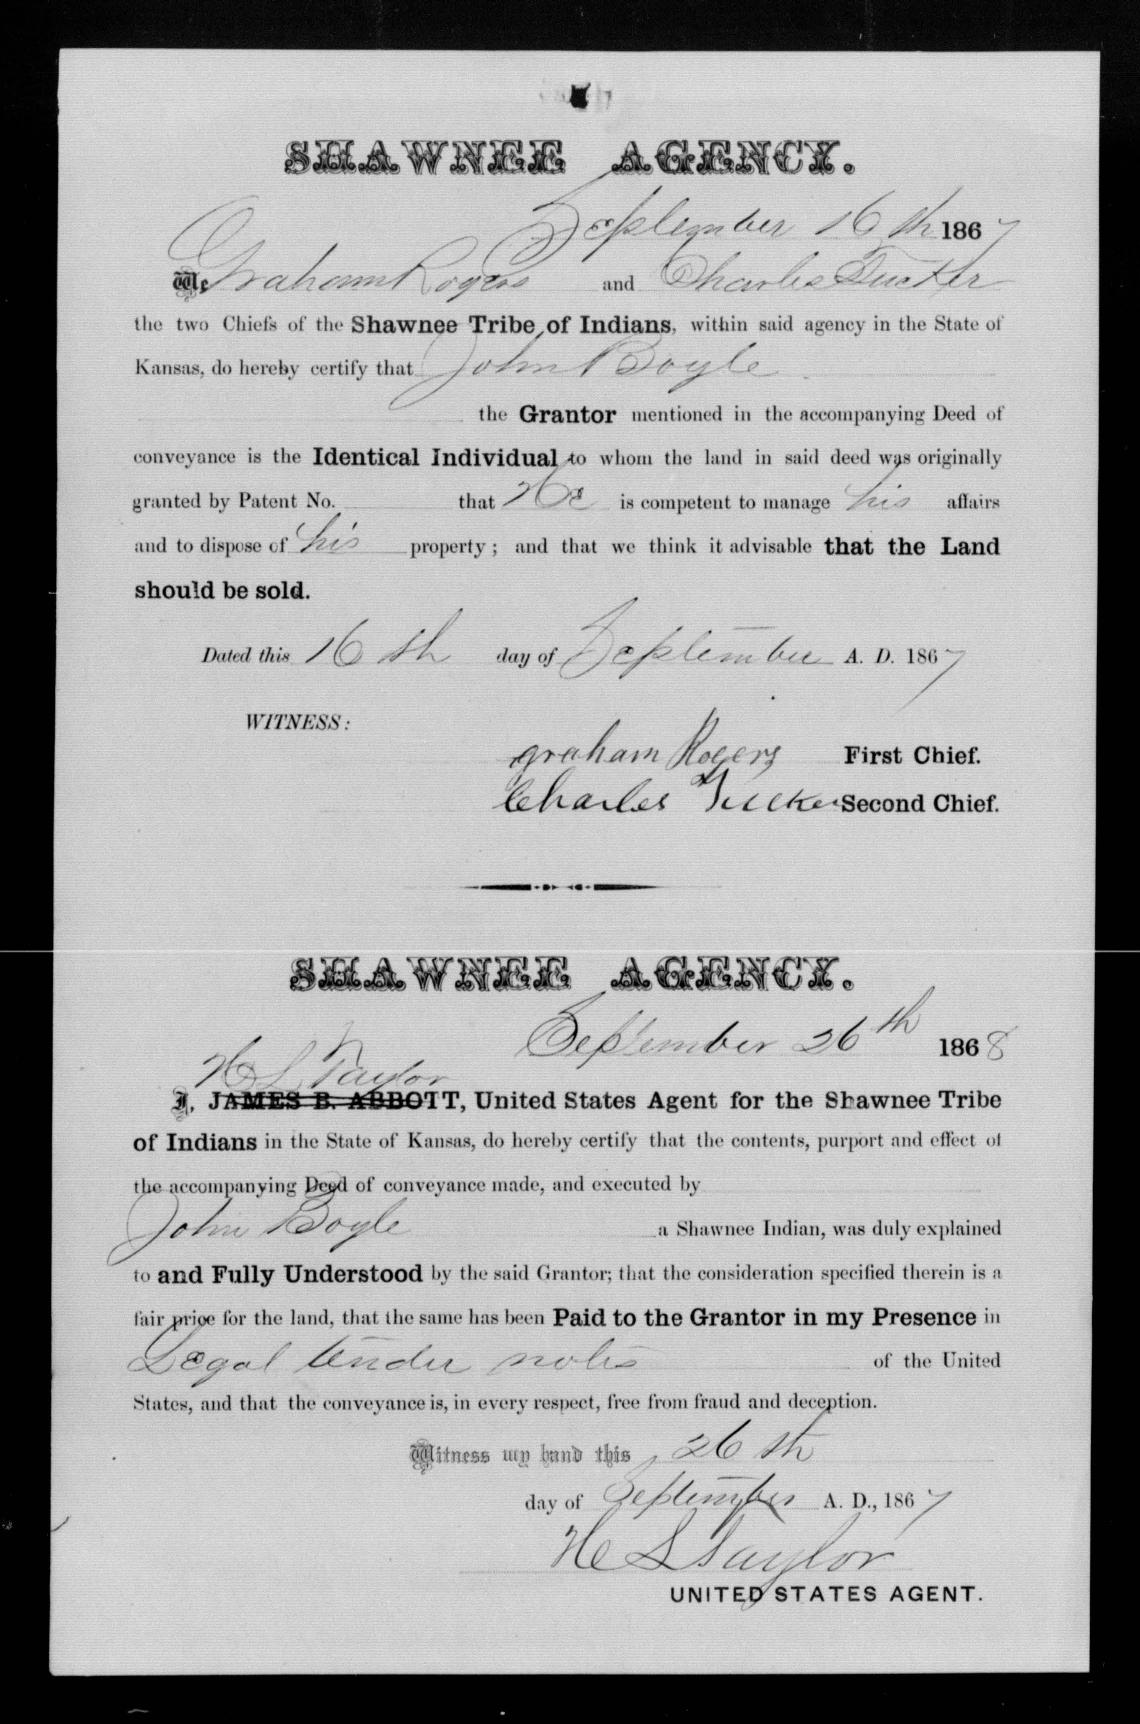 SHAWNEE AGENCY.
September 16th 1867
We Graham Rogers and Charles Tucker
the two Chiefs of the Shawnee Tribe of Indians, within said agency in the State of
Kansas, do hereby certify that John Boyle
the Grantor mentioned in the accompanying Deed of
conveyance is the Identical Individual to whom the land in said deed was originally
granted by Patent No. that He is competent to manage his affairs
and to dispose of his property; and that we think it advisable that the Land
should be sold.
Dated this 16th day of September A. D. 1867
WITNESS:
graham Rogers First Chief.
Charles Tucker Second Chief.
SHAWNEE AGENCY.
September 26th 1868
H L Taylor
I, JAMES B. ABBOTT, United States Agent for the Shawnee Tribe
of Indians in the State of Kansas, do hereby certify that the contents, purport and effect of
the accompanying Deed of conveyance made, and executed by
John Boyle a Shawnee Indian, was duly explained
to and Fully Understood by the said Grantor; that the consideration specified therein is a
fair price for the land, that the same has been Paid to the Grantor in my Presence in
Legal tender notes of the United
States, and that the conveyance is, in every respect, free from fraud and deception.
Witness my hand this 26th
day of September A. D., 1867
H L Taylor
UNITED STATES AGENT.